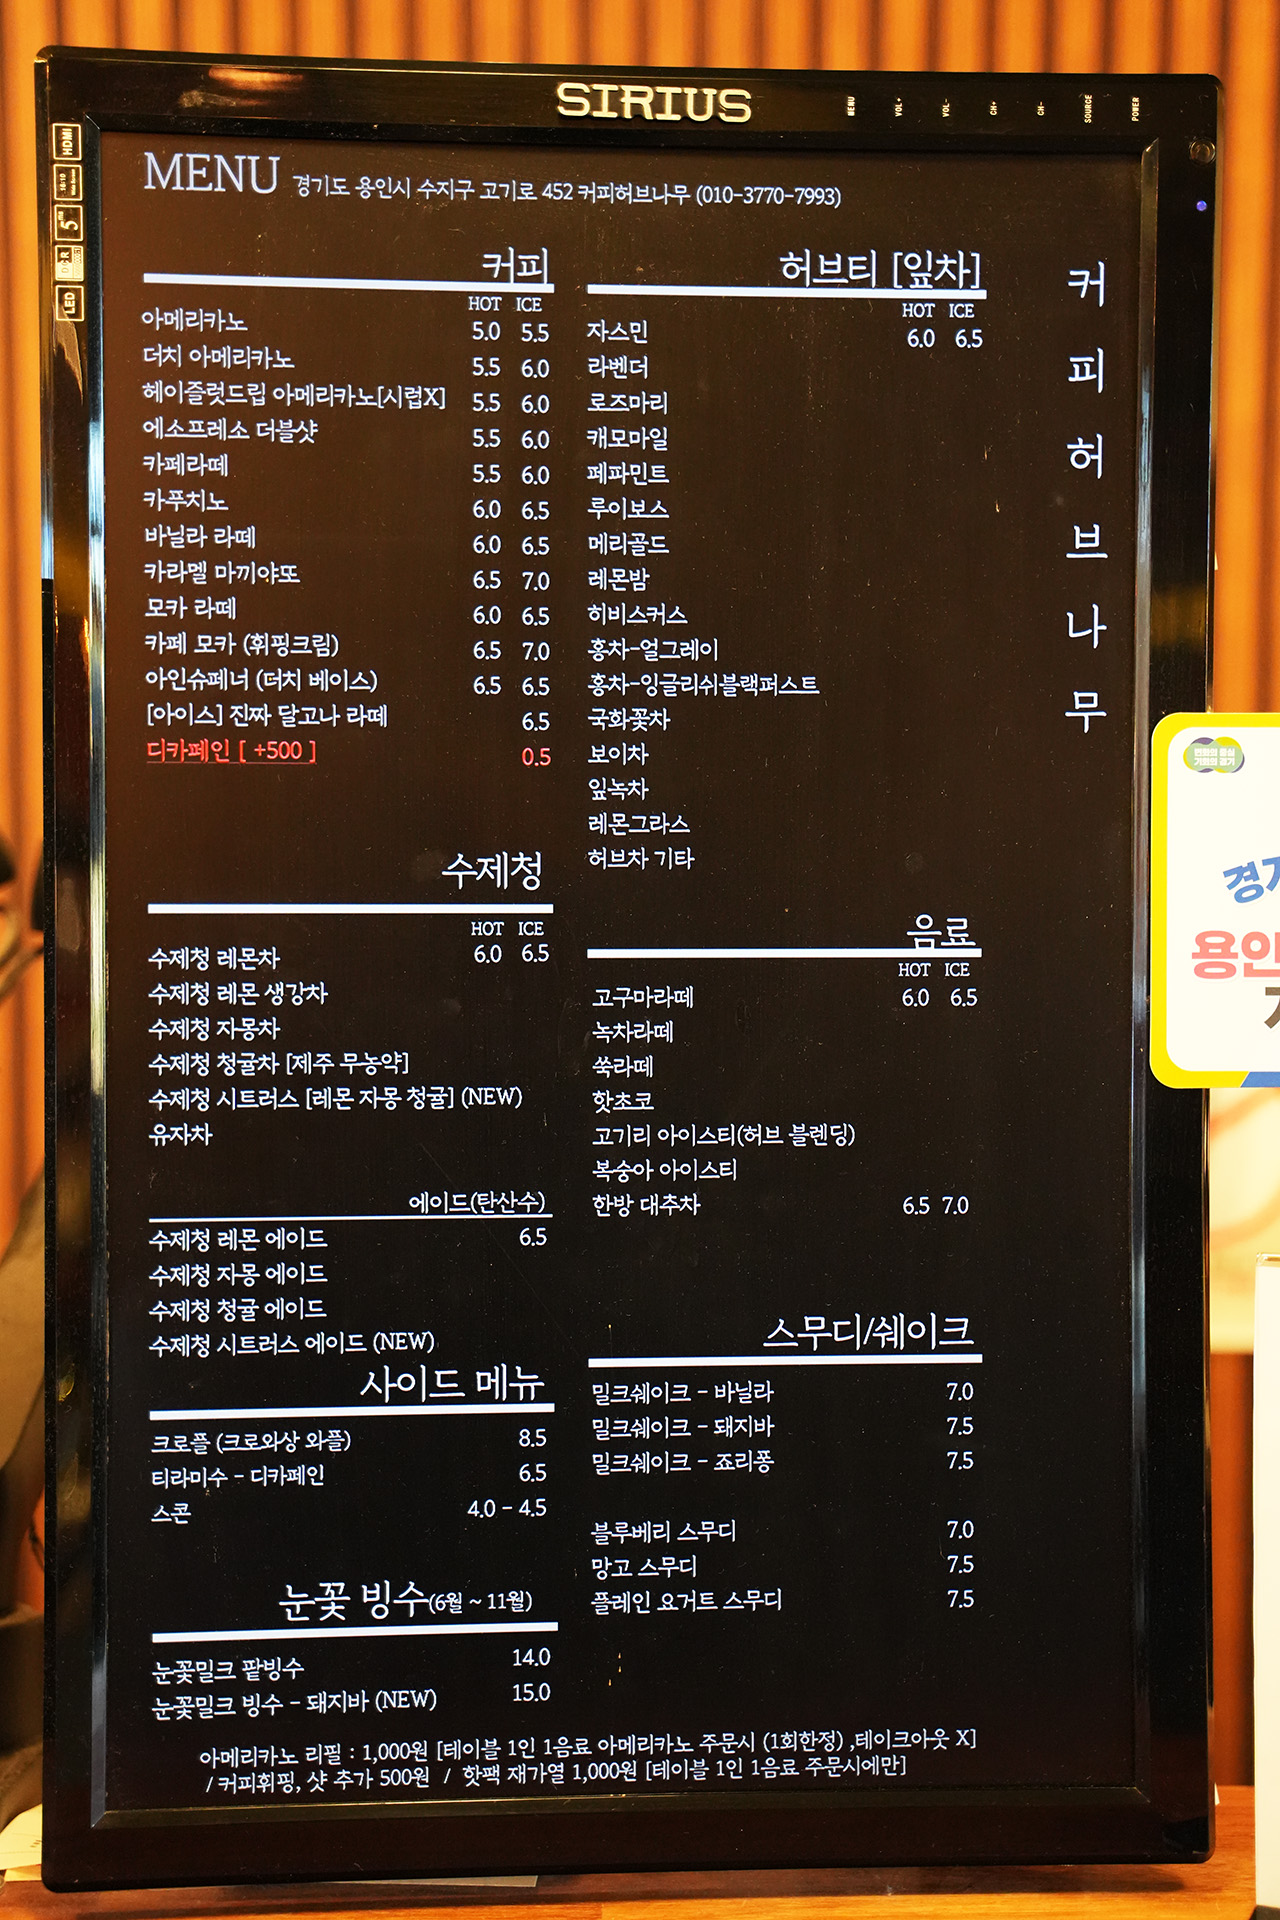 SIRIUS
MENU VOL+ VOL- CH+ CH- SOURCE POWER
HDMI
16:10
5ms
DCR
LED
MENU 경기도 용인시 수지구 고기로 452 커피허브나무 (010-3770-7993)
커피
HOT ICE
아메리카노 5.0 5.5
더치 아메리카노 5.5 6.0
헤이즐럿드립 아메리카노[시럽X] 5.5 6.0
에소프레소 더블샷 5.5 6.0
카페라떼 5.5 6.0
카푸치노 6.0 6.5
바닐라 라떼 6.0 6.5
카라멜 마끼야또 6.5 7.0
모카 라떼 6.0 6.5
카페 모카 (휘핑크림) 6.5 7.0
아인슈페너 (더치 베이스) 6.5 6.5
[아이스] 진짜 달고나 라떼 6.5
디카페인 [ +500 ] 0.5
수제청
HOT ICE
수제청 레몬차 6.0 6.5
수제청 레몬 생강차
수제청 자몽차
수제청 청귤차 [제주 무농약]
수제청 시트러스 [레몬 자몽 청귤] (NEW)
유자차
에이드(탄산수)
수제청 레몬 에이드 6.5
수제청 자몽 에이드
수제청 청귤 에이드
수제청 시트러스 에이드 (NEW)
사이드 메뉴
크로플 (크로와상 와플) 8.5
티라미수 - 디카페인 6.5
스콘 4.0 - 4.5
눈꽃 빙수(6월 ~ 11월)
눈꽃밀크 팥빙수 14.0
눈꽃밀크 빙수 - 돼지바 (NEW) 15.0
허브티 [잎차]
HOT ICE
자스민 6.0 6.5
라벤더
로즈마리
캐모마일
페파민트
루이보스
메리골드
레몬밤
히비스커스
홍차-얼그레이
홍차-잉글리쉬블랙퍼스트
국화꽃차
보이차
잎녹차
레몬그라스
허브차 기타
음료
HOT ICE
고구마라떼 6.0 6.5
녹차라떼
쑥라떼
핫초코
고기리 아이스티(허브 블렌딩)
복숭아 아이스티
한방 대추차 6.5 7.0
스무디/쉐이크
밀크쉐이크 - 바닐라 7.0
밀크쉐이크 - 돼지바 7.5
밀크쉐이크 - 죠리퐁 7.5
블루베리 스무디 7.0
망고 스무디 7.5
플레인 요거트 스무디 7.5
아메리카노 리필 : 1,000원 [테이블 1인 1음료 아메리카노 주문시 (1회한정) ,테이크아웃 X]
/ 커피휘핑, 샷 추가 500원 / 핫팩 재가열 1,000원 [테이블 1인 1음료 주문시에만]
커
피
허
브
나
무
변화의 중심
기회의 경기
경기
용인